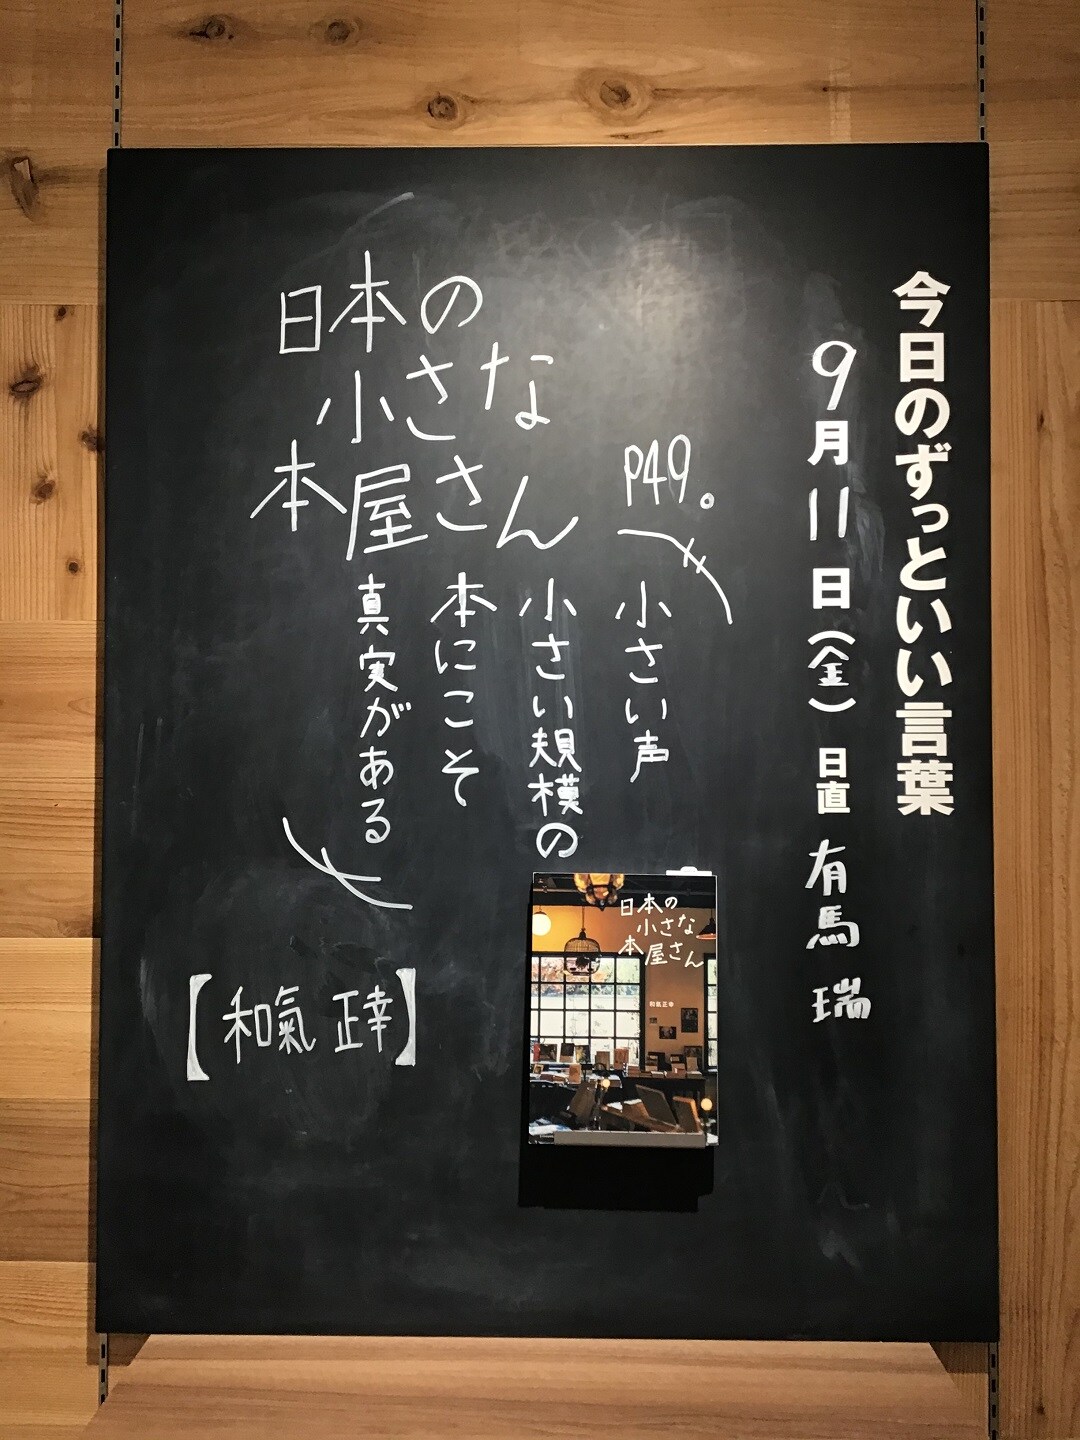 今日のずっといい言葉
9月11日(金) 日直 有馬 瑞
P49。
小さい声
小さい規模の
本にこそ
真実がある
日本の
小さな
本屋さん
【和氣 正幸】
日本の
小さな
本屋さん
和氣正幸